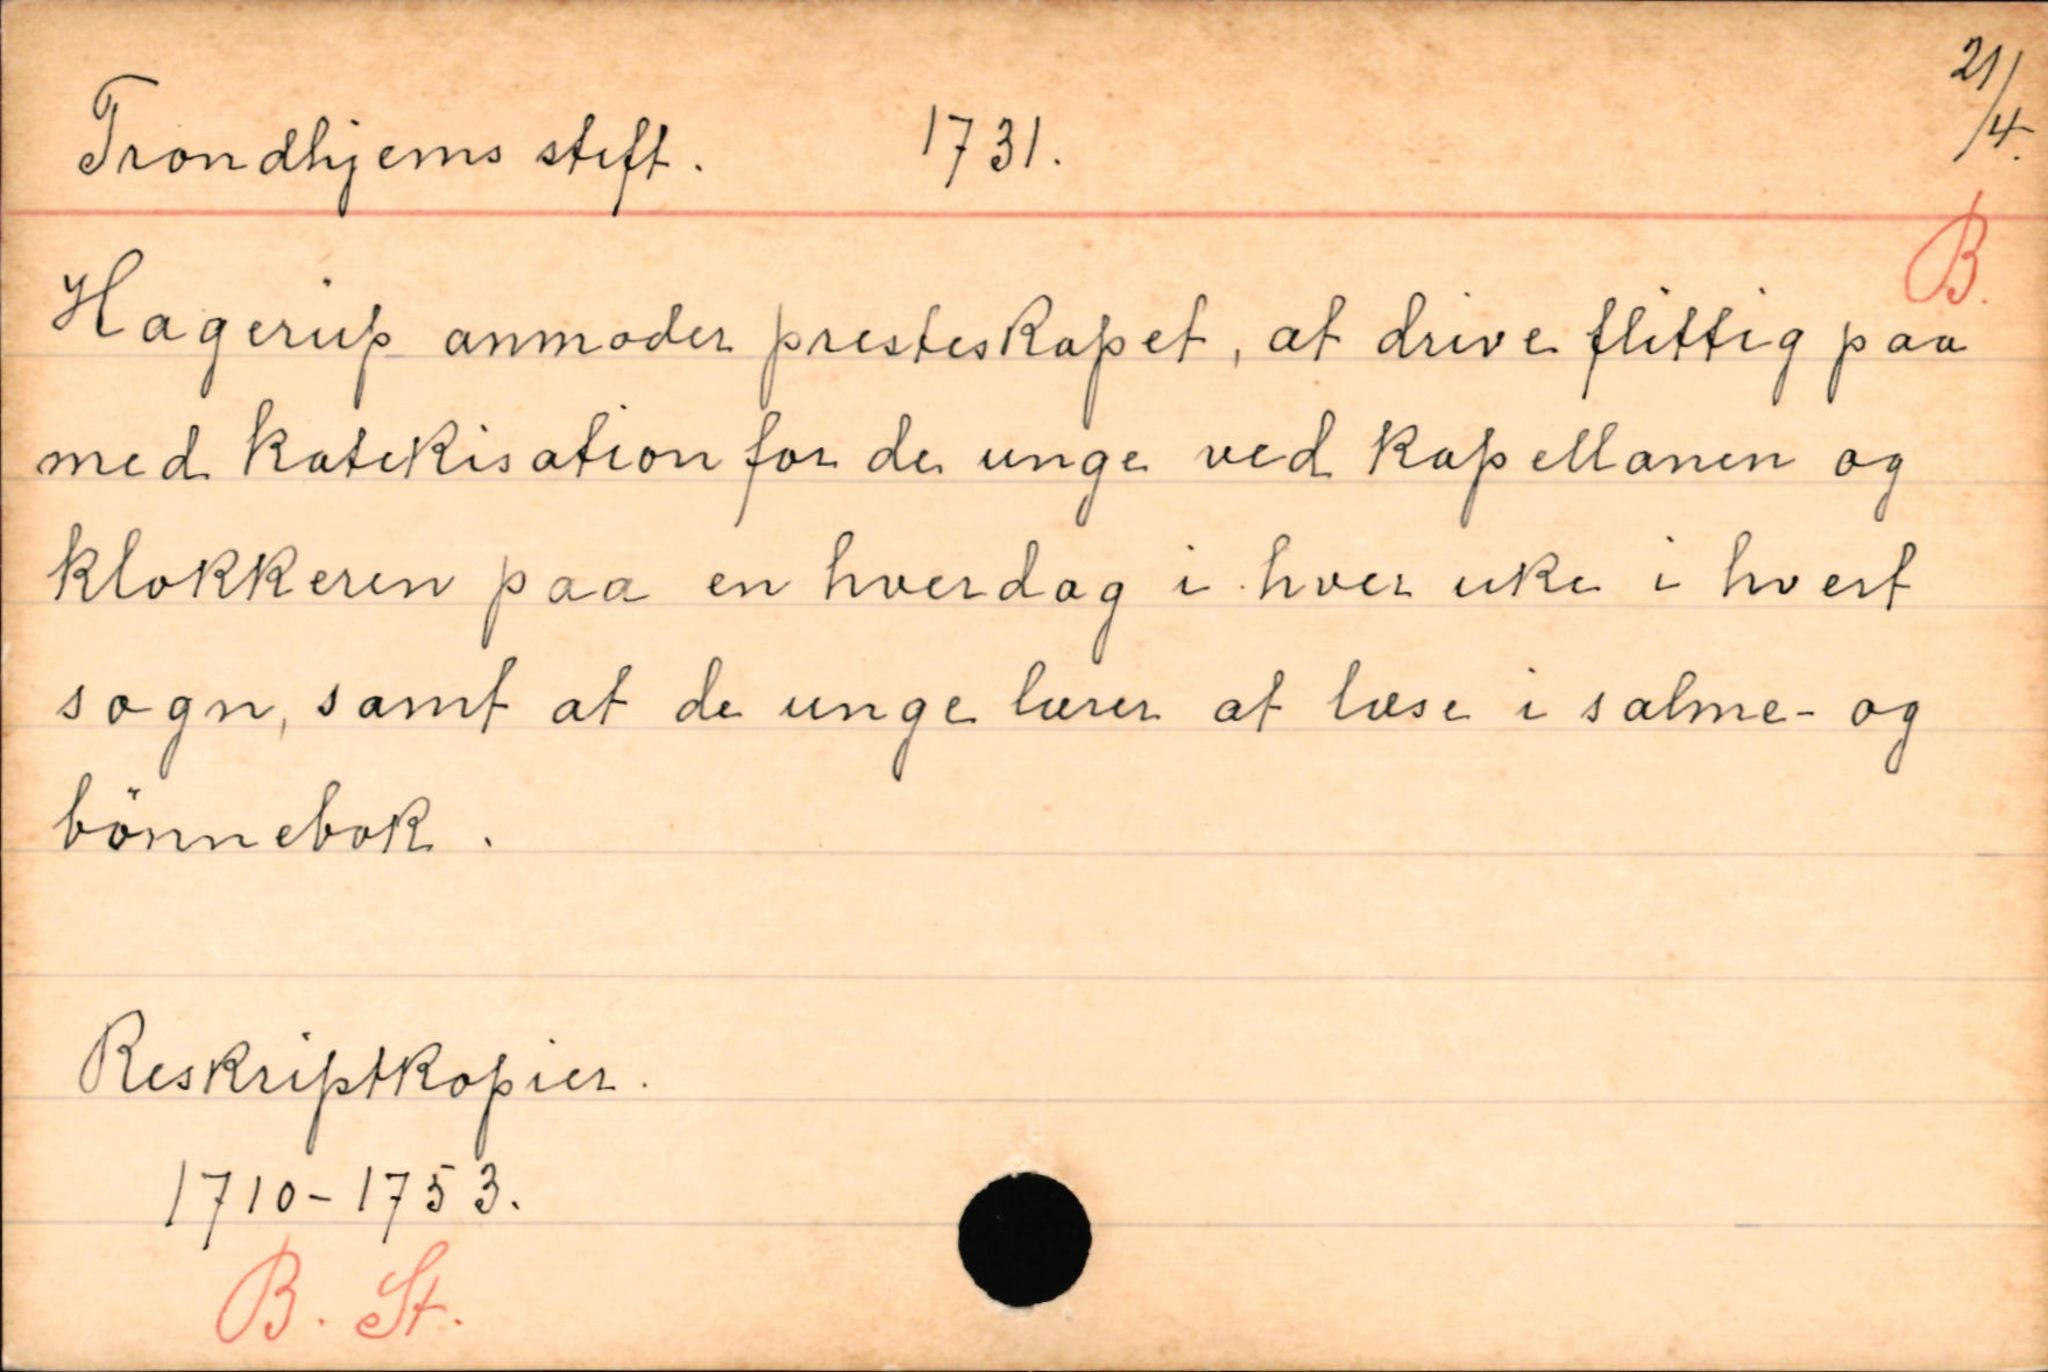 Trondhjems stift. 1731. 21/4.
B.
Hagerup anmoder presteskapet, at drive flittig paa
med katekisation for de unge ved kapellanen og
klokkeren paa en hverdag i hver uke i hvert
sogn, samt at de unge lærer at læse i salme- og
bönnebok.
Reskriptkopier.
1710-1753.
B. St.